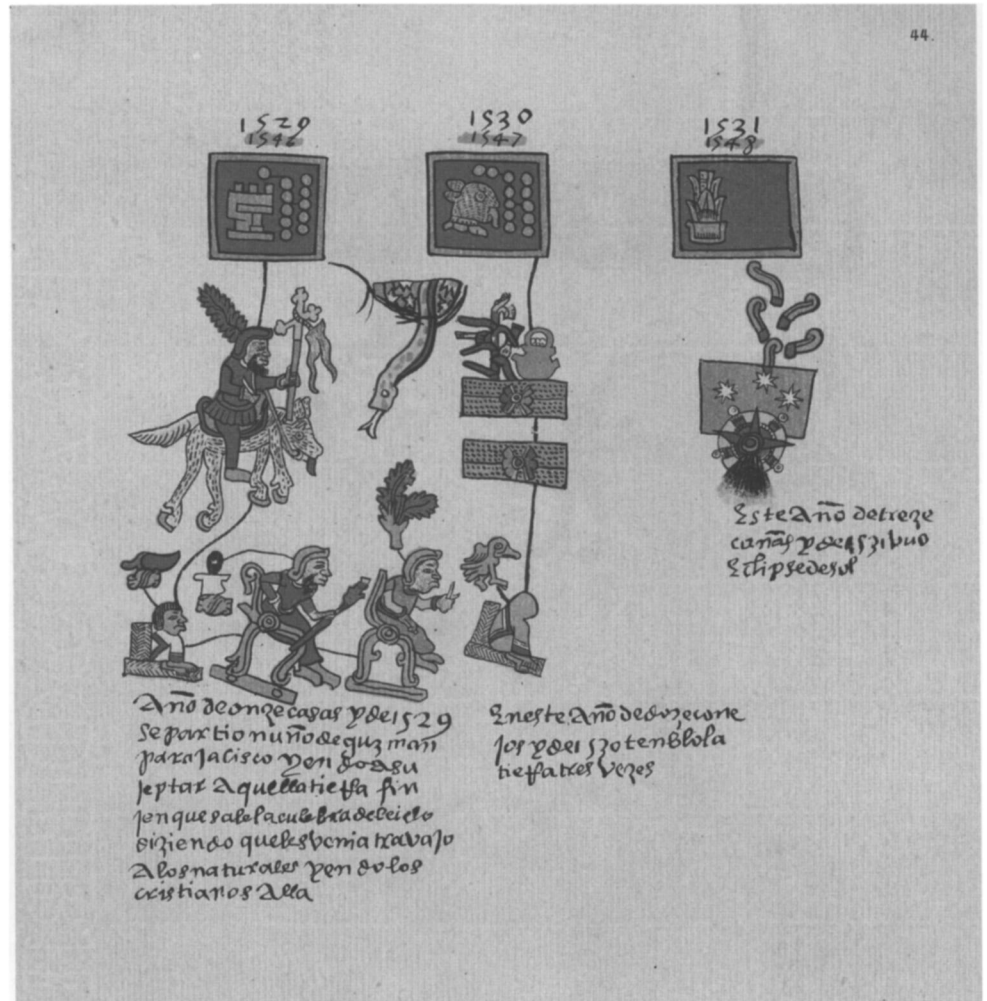 44.
1529
1546
1530
1547
1531
1548
Este Año de treze
cañas y de 1531 vuo
Eclipse de sol
Año de onze casas y de 1529
se partio nuño de guzman
para Jalisco yendo a su
jeptar Aquella tierra fin
jen que sale la culebra del cielo
diziendo que les venia travajo
A los naturales yendo los
cristianos Alla
Eneste Año de doze cone
jos y de 1530 tenblo la
tierra tres vezes